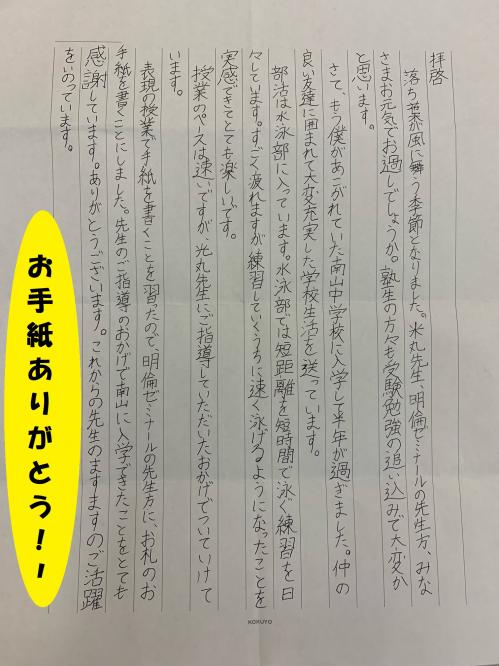 拝啓
落ち葉が風に舞う季節となりました。米丸先生、明倫ゼミナールの先生方、みな
さまお元気でお過しでしょうか。塾生の方々も受験勉強の追い込みで大変か
と思います。
さて、もう僕があこがれていた南山中学校に入学して半年が過ぎました。仲の
良い友達に囲まれて大変充実した学校生活を送っています。
部活は水泳部に入っています。水泳部では短距離を短時間で泳ぐ練習を日
々しています。すごく疲れますが練習していくうちに速く泳げるようになったことを
実感できてとても楽しいです。
授業のペースは速いですが光丸先生にご指導していただいたおかげでついていけて
います。
表現の授業で手紙を書くことを習ったので、明倫ゼミナールの先生方に、お札のお
手紙を書くことにしました。先生のご指導のおかげで南山に入学できたことをとても
感謝しています。ありがとうございます。これからの先生のますますのご活躍
をいのっています。
お手紙ありがとう!!
KOKUYO